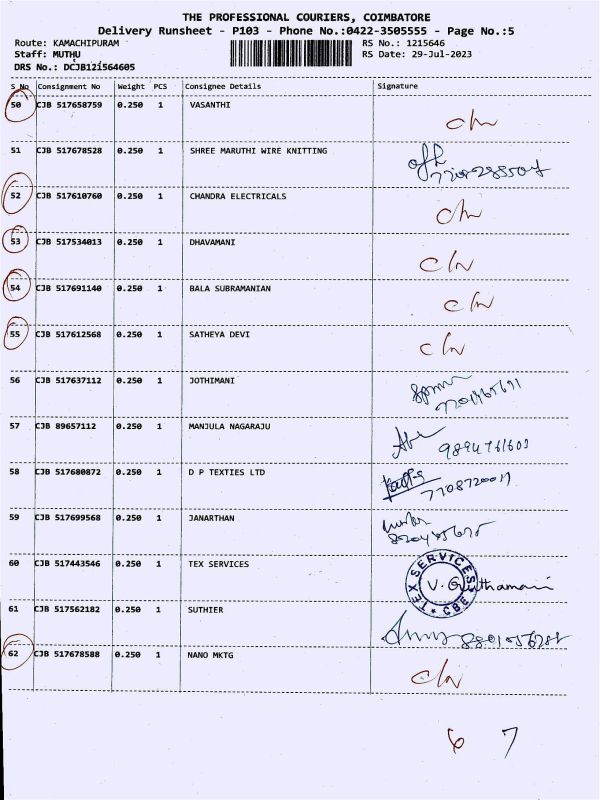 THE PROFESSIONAL COURIERS, COIMBATORE
Delivery Runsheet - P103 - Phone No.:0422-3505555 - Page No.:5
Route: KAMACHIPURAM RS No.: 1215646
Staff: MUTHU RS Date: 29-Jul-2023
DRS No.: DCJB121564605
S No Consignment No Weight PCS Consignee Details Signature
50 CJB 517658759 0.250 1 VASANTHI
51 CJB 517678528 0.250 1 SHREE MARUTHI WIRE KNITTING
52 CJB 517610760 0.250 1 CHANDRA ELECTRICALS
53 CJB 517534013 0.250 1 DHAVAMANI
54 CJB 517691140 0.250 1 BALA SUBRAMANIAN
55 CJB 517612568 0.250 1 SATHEYA DEVI
56 CJB 517637112 0.250 1 JOTHIMANI
57 CJB 89657112 0.250 1 MANJULA NAGARAJU
9894761601
58 CJB 517680872 0.250 1 D P TEXTIES LTD
7708720017
59 CJB 517699568 0.250 1 JANARTHAN
60 CJB 517443546 0.250 1 TEX SERVICES
TEX SERVICES
CBE
61 CJB 517562182 0.250 1 SUTHIER
62 CJB 517678588 0.250 1 NANO MKTG
6 7